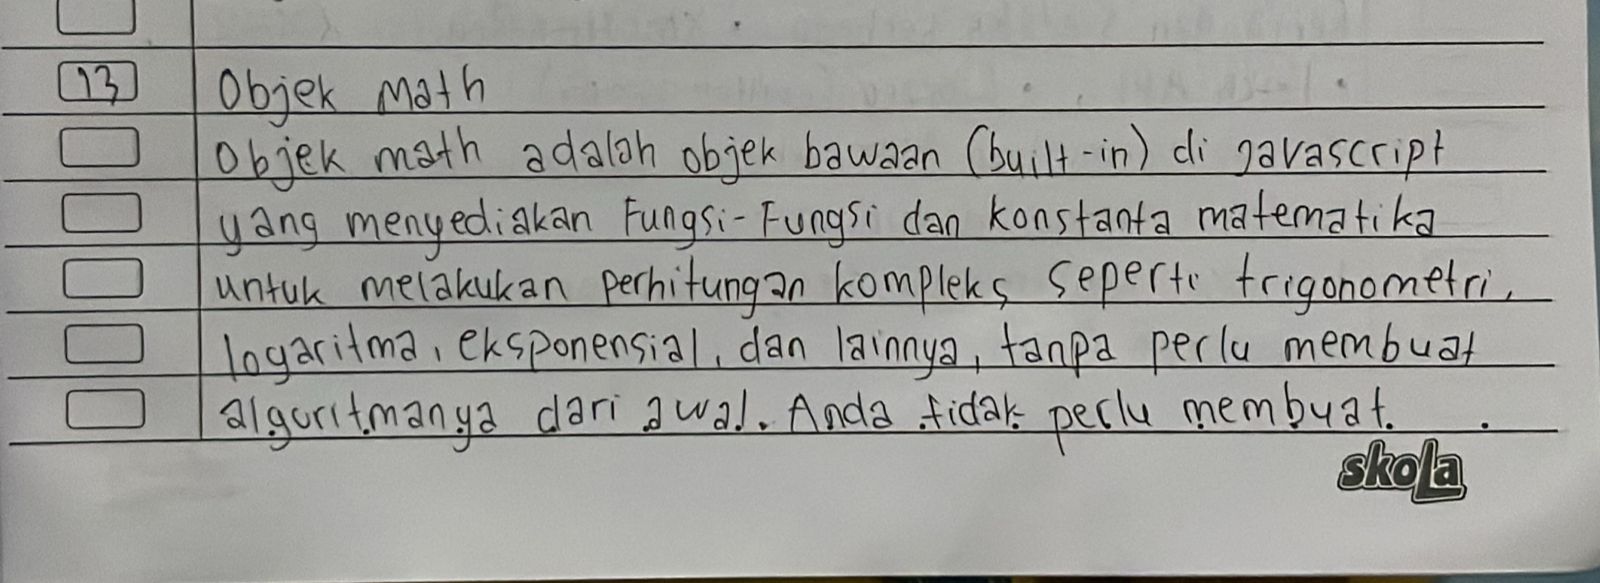 13 Objek Math
Objek math adalah objek bawaan (built-in) di javascript
yang menyediakan Fungsi-Fungsi dan konstanta matematika
untuk melakukan perhitungan kompleks seperti trigonometri,
logaritma, eksponensial, dan lainnya, tanpa perlu membuat
algoritmanya dari awal. Anda tidak perlu membuat.
skola